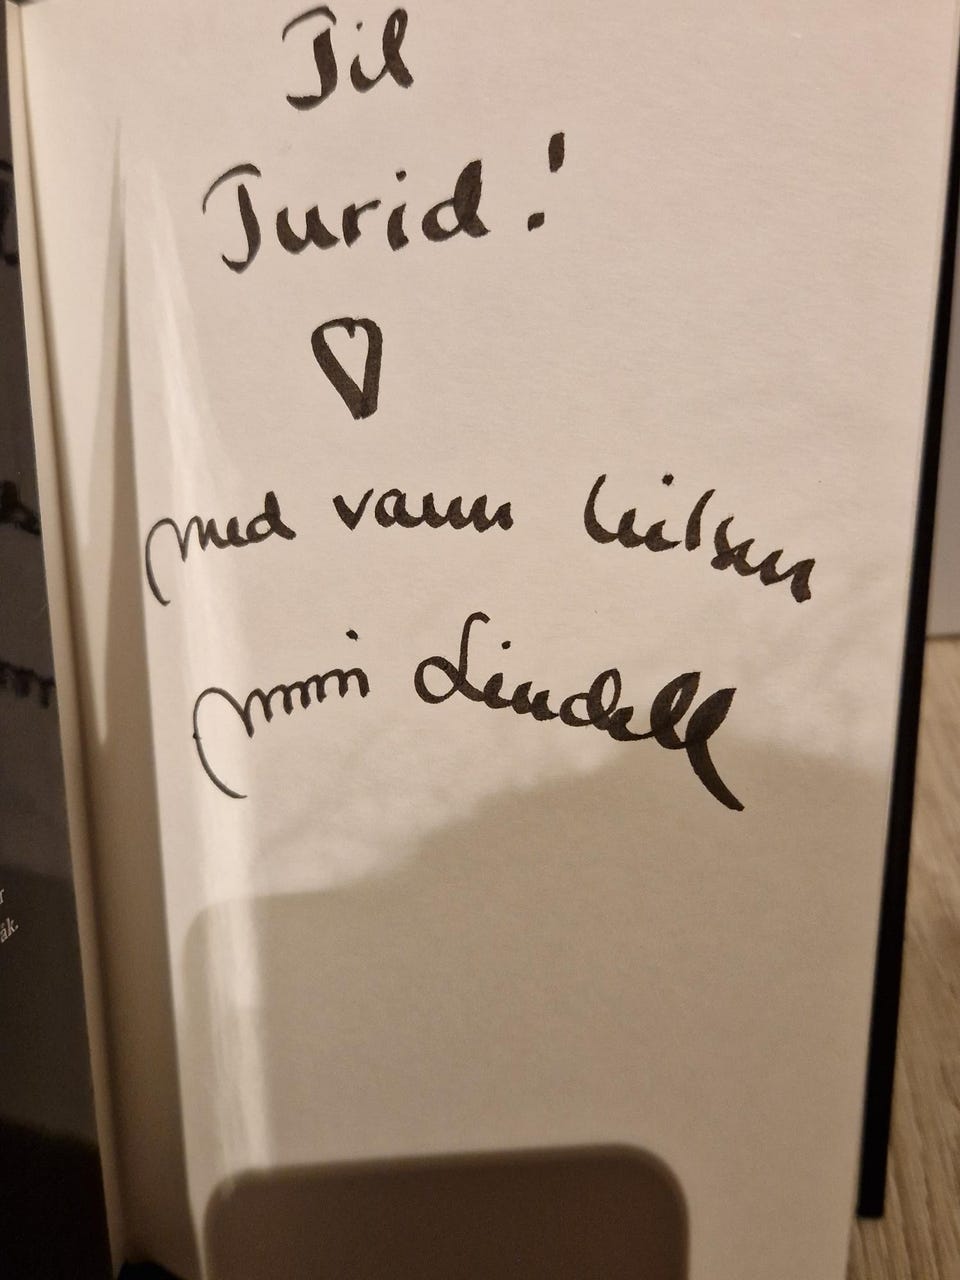 Til
Turid!
med varm hilsen
Unni Lindell
r
åk.